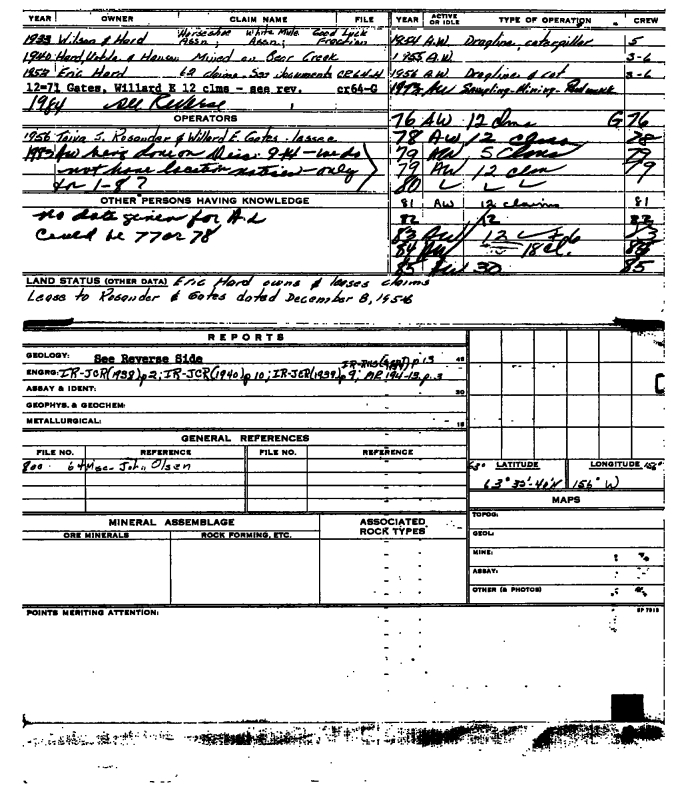 YEAR OWNER CLAIM NAME FILE
Horseshoe White Mule Good Luck
1933 Wilson & Hard Assn; Assn; Fraction
1940 Hard, & Hansen Mined on Bear Creek
1953 Eric Hard 62 claims. See documents CR64-H
12-71 Gates, Willard E 12 clms - see rev. cr64-G
1984 see Reverse
OPERATORS
1956 Toiva S. Rosander & Willard E. Gates - lessee
1983 AW being done on Disc. 9-14 - we do
not have location notices - only
for 1-8?
OTHER PERSONS HAVING KNOWLEDGE
no date given for A.L
Could be 77 or 78
YEAR ACTIVE OR IDLE TYPE OF OPERATION CREW
1954 A.W. Dragline, caterpillar 5
1955 A.W. 3-6
1956 A.W. Dragline & cat 3-6
1973 AW Sampling-Mining-
76 AW 12 clms G 76
78 AW 12 clms 78
79 AW 5 clms 79
79 AW 12 clm 79
80
81 AW 12 claims 81
82 12 82
83 AW 12 83
84 AW 18 cl. 84
85 AW 30 85
LAND STATUS (OTHER DATA) Eric Hard owns & leases claims
Lease to Rosander & Gates dated December 8, 1956
REPORTS
GEOLOGY: See Reverse Side
ENGRG: IR-JCR(1938)p2; IR-JCR(1940)p10; IR-JCR(1939)p9; MR 194-13, p.3
ASSAY & IDENT:
GEOPHYS. & GEOCHEM:
METALLURGICAL:
GENERAL REFERENCES
FILE NO. REFERENCE FILE NO. REFERENCE
800 64 Misc- John Olsen
LATITUDE LONGITUDE
63° 35'-40'N 156° W
MINERAL ASSEMBLAGE
ORE MINERALS ROCK FORMING, ETC.
ASSOCIATED
ROCK TYPES
MAPS
TOPOG:
GEOL:
MINE:
ASSAY:
OTHER (& PHOTOS)
POINTS MERITING ATTENTION: